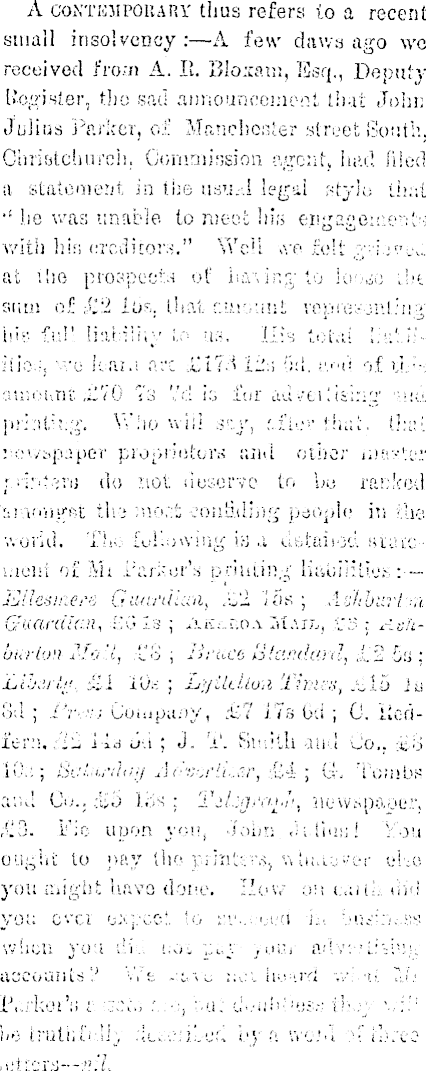 A CONTEMPORARY thus refers to a recent
small insolvency :—A few daws ago we
received from A. R. Bloxam, Esq., Deputy
Register, the sad announcement that John
Julius Parker, of Manchester street South,
Christchurch, Commission agent, had filed
a statement in the usual legal style that
" he was unable to meet his engagements
with his creditors." Well we felt grieved
at the prospects of having to loose the
sum of £2 15s, that amount representing
his full liability to us. His total liabil-
ities, we learn are £178 12s 6d, and of this
amount £70 7s 7d is for advertising and
printing. Who will say, after that, that
newspaper proprietors and other master
printers do not deserve to be ranked
amongst the most confiding people in the
world. The following is a detailed state-
ment of Mr Parker's printing liabilities :—
Ellesmere Guardian, £2 15s ; Ashburton
Guardian, £6 1s ; AKAROA MAIL, £3 ; Ash-
burton Mail, £8 ; Bruce Standard, £2 5s ;
Liberty, £1 10s ; Lyttelton Times, £15 1s
8d ; Press Company, £7 17s 6d ; C. Red-
fern, £2 14s 5d ; J. T. Smith and Co., £8
10s ; Saturday Advertiser, £4 ; G. Tombs
and Co., £5 13s ; Telegraph, newspaper,
£3. Fie upon you, John Julius! You
ought to pay the printers, whatever else
you might have done. How on earth did
you ever expect to succeed in business
when you did not pay your advertising
accounts? We have not heard what Mr
Parker's assets are, but doubtless they will
be truthfully described by a word of three
letters—nil.